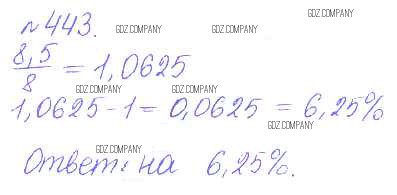 GDZ.COMPANY
№443. GDZ.COMPANY GDZ.COMPANY
8,5/8 = 1,0625
GDZ.COMPANY GDZ.COMPANY
1,0625-1=0,0625 = 6,25%
GDZ.COMPANY
GDZ.COMPANY
Ответ: на 6,25%.